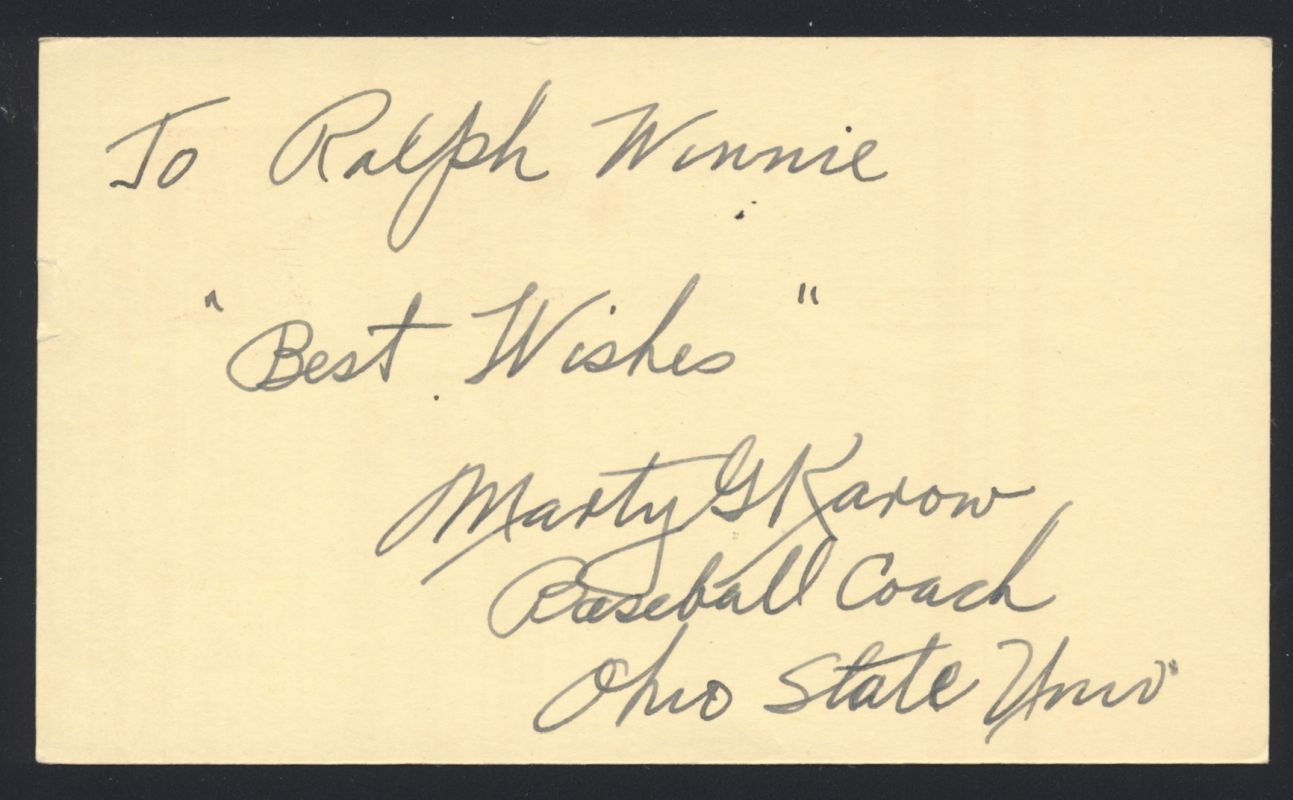 To Ralph Winnie
"Best Wishes"
Marty G Karow
Baseball Coach
Ohio State Univ